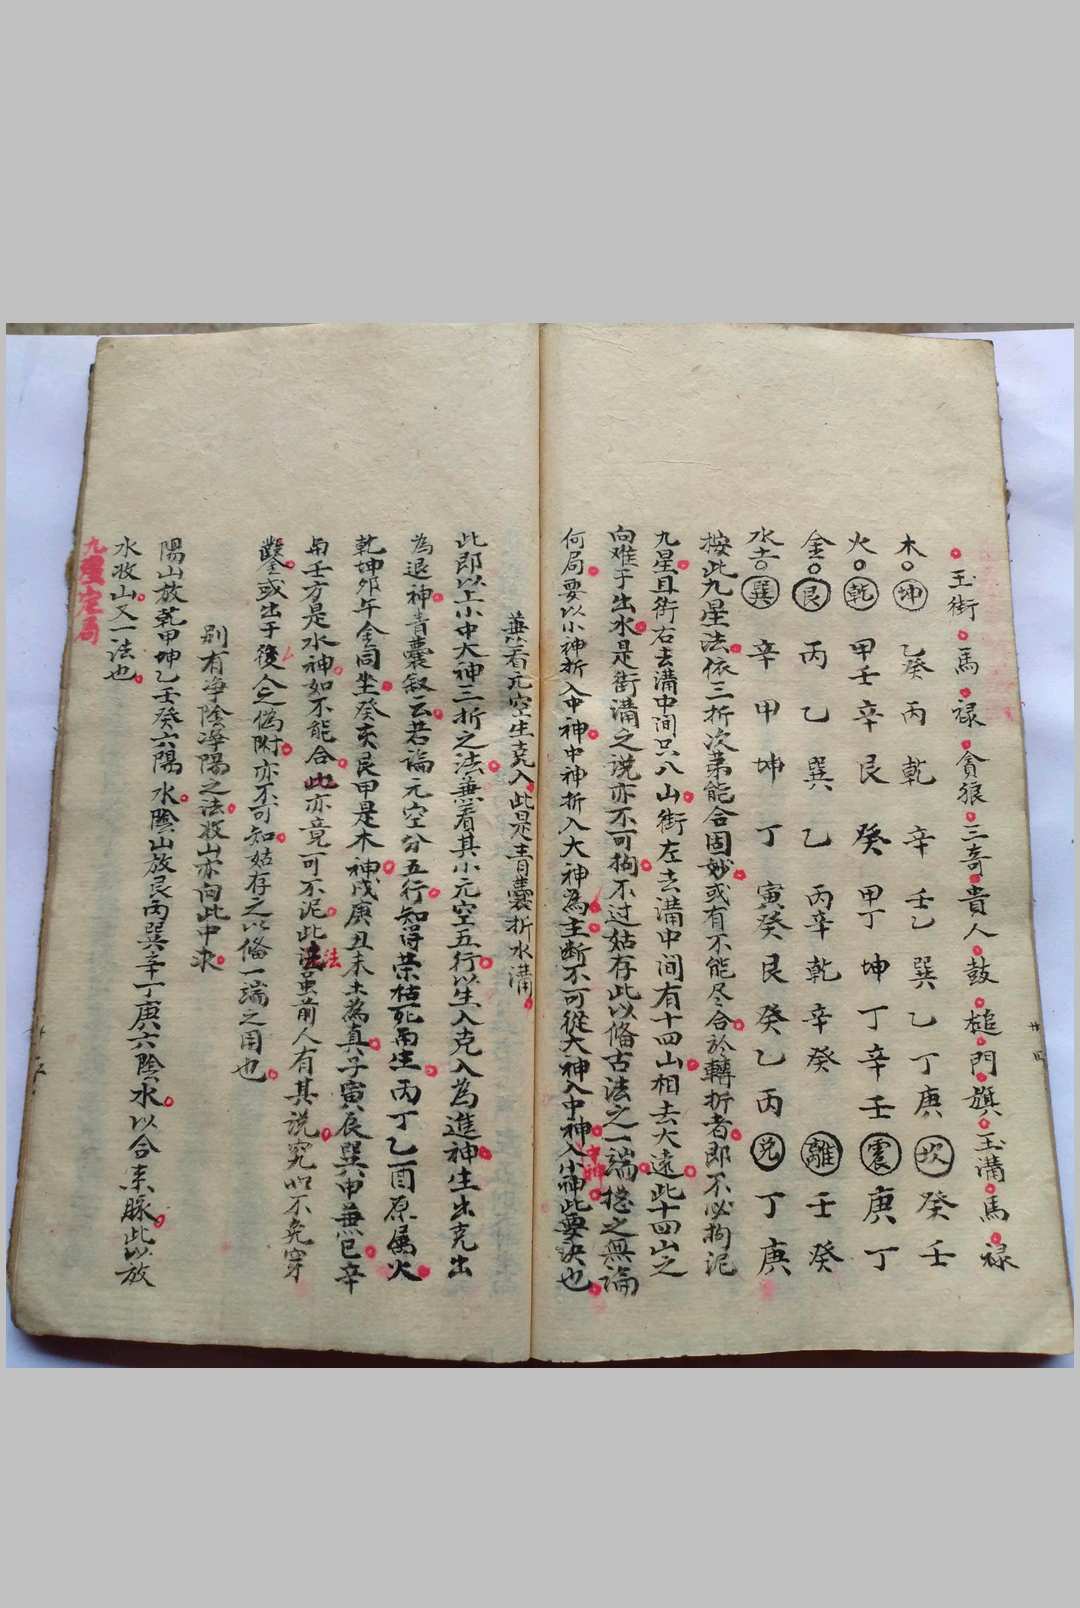 玉街馬祿貪狼三奇貴人鼓槌門旗玉溝馬祿
木坤乙癸丙乾辛壬乙巽乙丁庚坎癸壬
火乾甲壬辛艮癸甲丁坤丁辛壬震庚丁
金艮丙乙巽乙丙辛乾辛癸離壬癸
水土巽辛甲坤丁寅癸艮癸乙丙兑丁庚
按此九星法依三折次第能合固妙或有不能尽合於轉折者即不必拘泥
九星且街右去溝中間只八山街左去溝中间有十四山相去大遠此十四山之
向难于出水是街溝之说亦不可拘不过姑存此以俻古法之一端揔之無論
何局要以小神折入中神中神折入大神為主断不可從大神入中神中神入小神此要訣也
兼看元空生克入此是青囊折水溝
此即以上小中大神三折之法兼看其小元空五行以生入克入為進神生出克出
為退神青囊叙云若論元空分五行知得荣枯死而生丙丁乙酉原属火
乾坤夘午金同坐癸亥艮甲是木神戌庚丑未土為真子寅辰巽申兼已辛
与壬方是水神如不能合此亦竟可不泥此法法虽前人有其说究以不免穿
鑿或出于後人之偽附亦不可知姑存之以俻一端之用也
别有净陰净陽之法收山亦向此中求
陽山放乾甲坤乙壬癸六陽水陰山放艮丙巽辛丁庚六陰水以合来脉此以放
水收山又一法也
九星定局